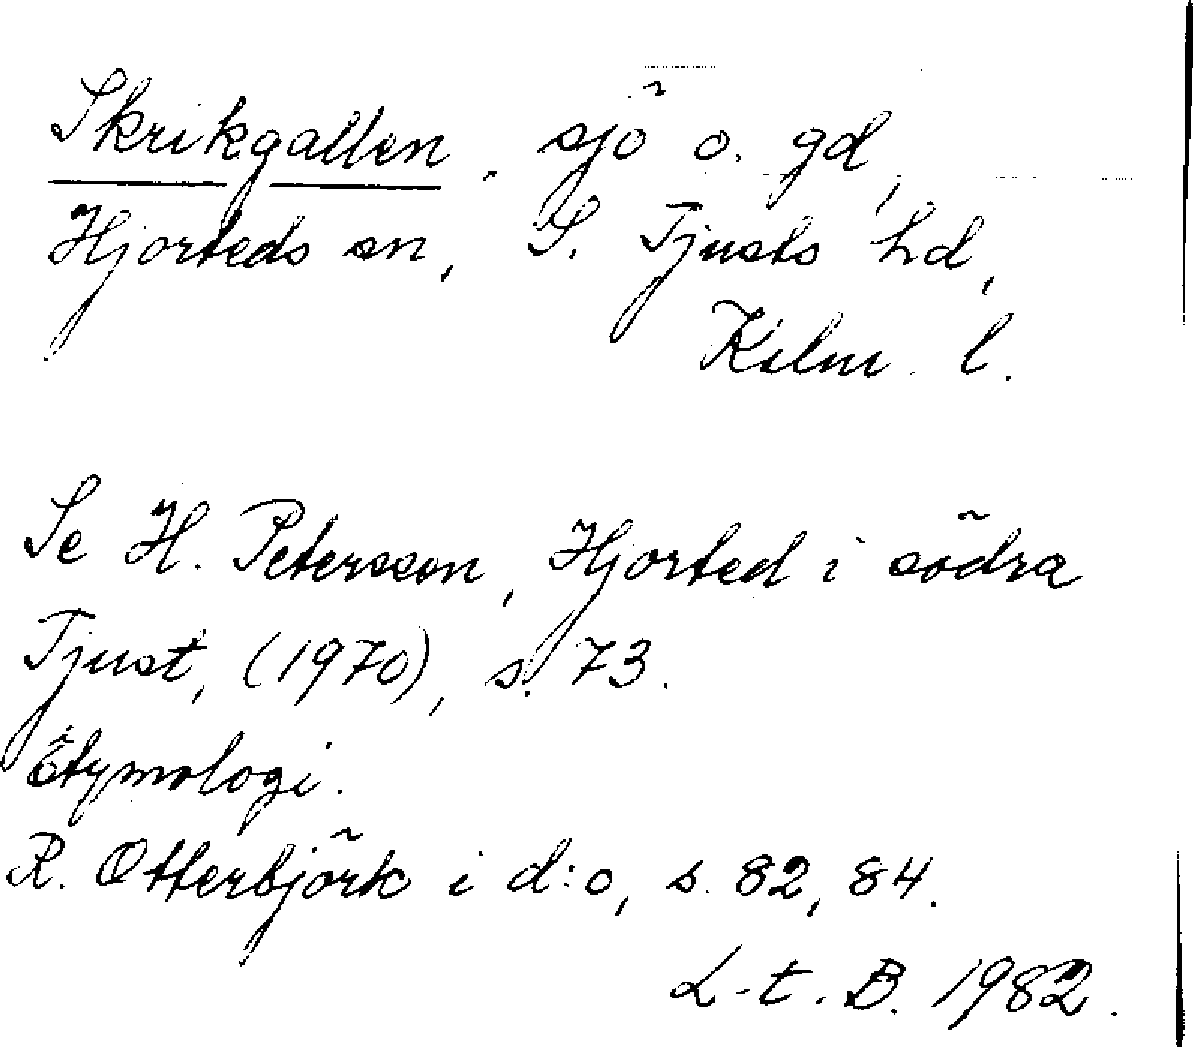 Skrikgallen, sjö o. gd,
Hjorteds sn, S. Tjusts hd,
Kalm. l.
Se H. Petersson, Hjorted i södra
Tjust, (1970), s. 73.
Etymologi.
R. Otterbjörk i d:o, s. 82, 84.
L-t. B. 1982.